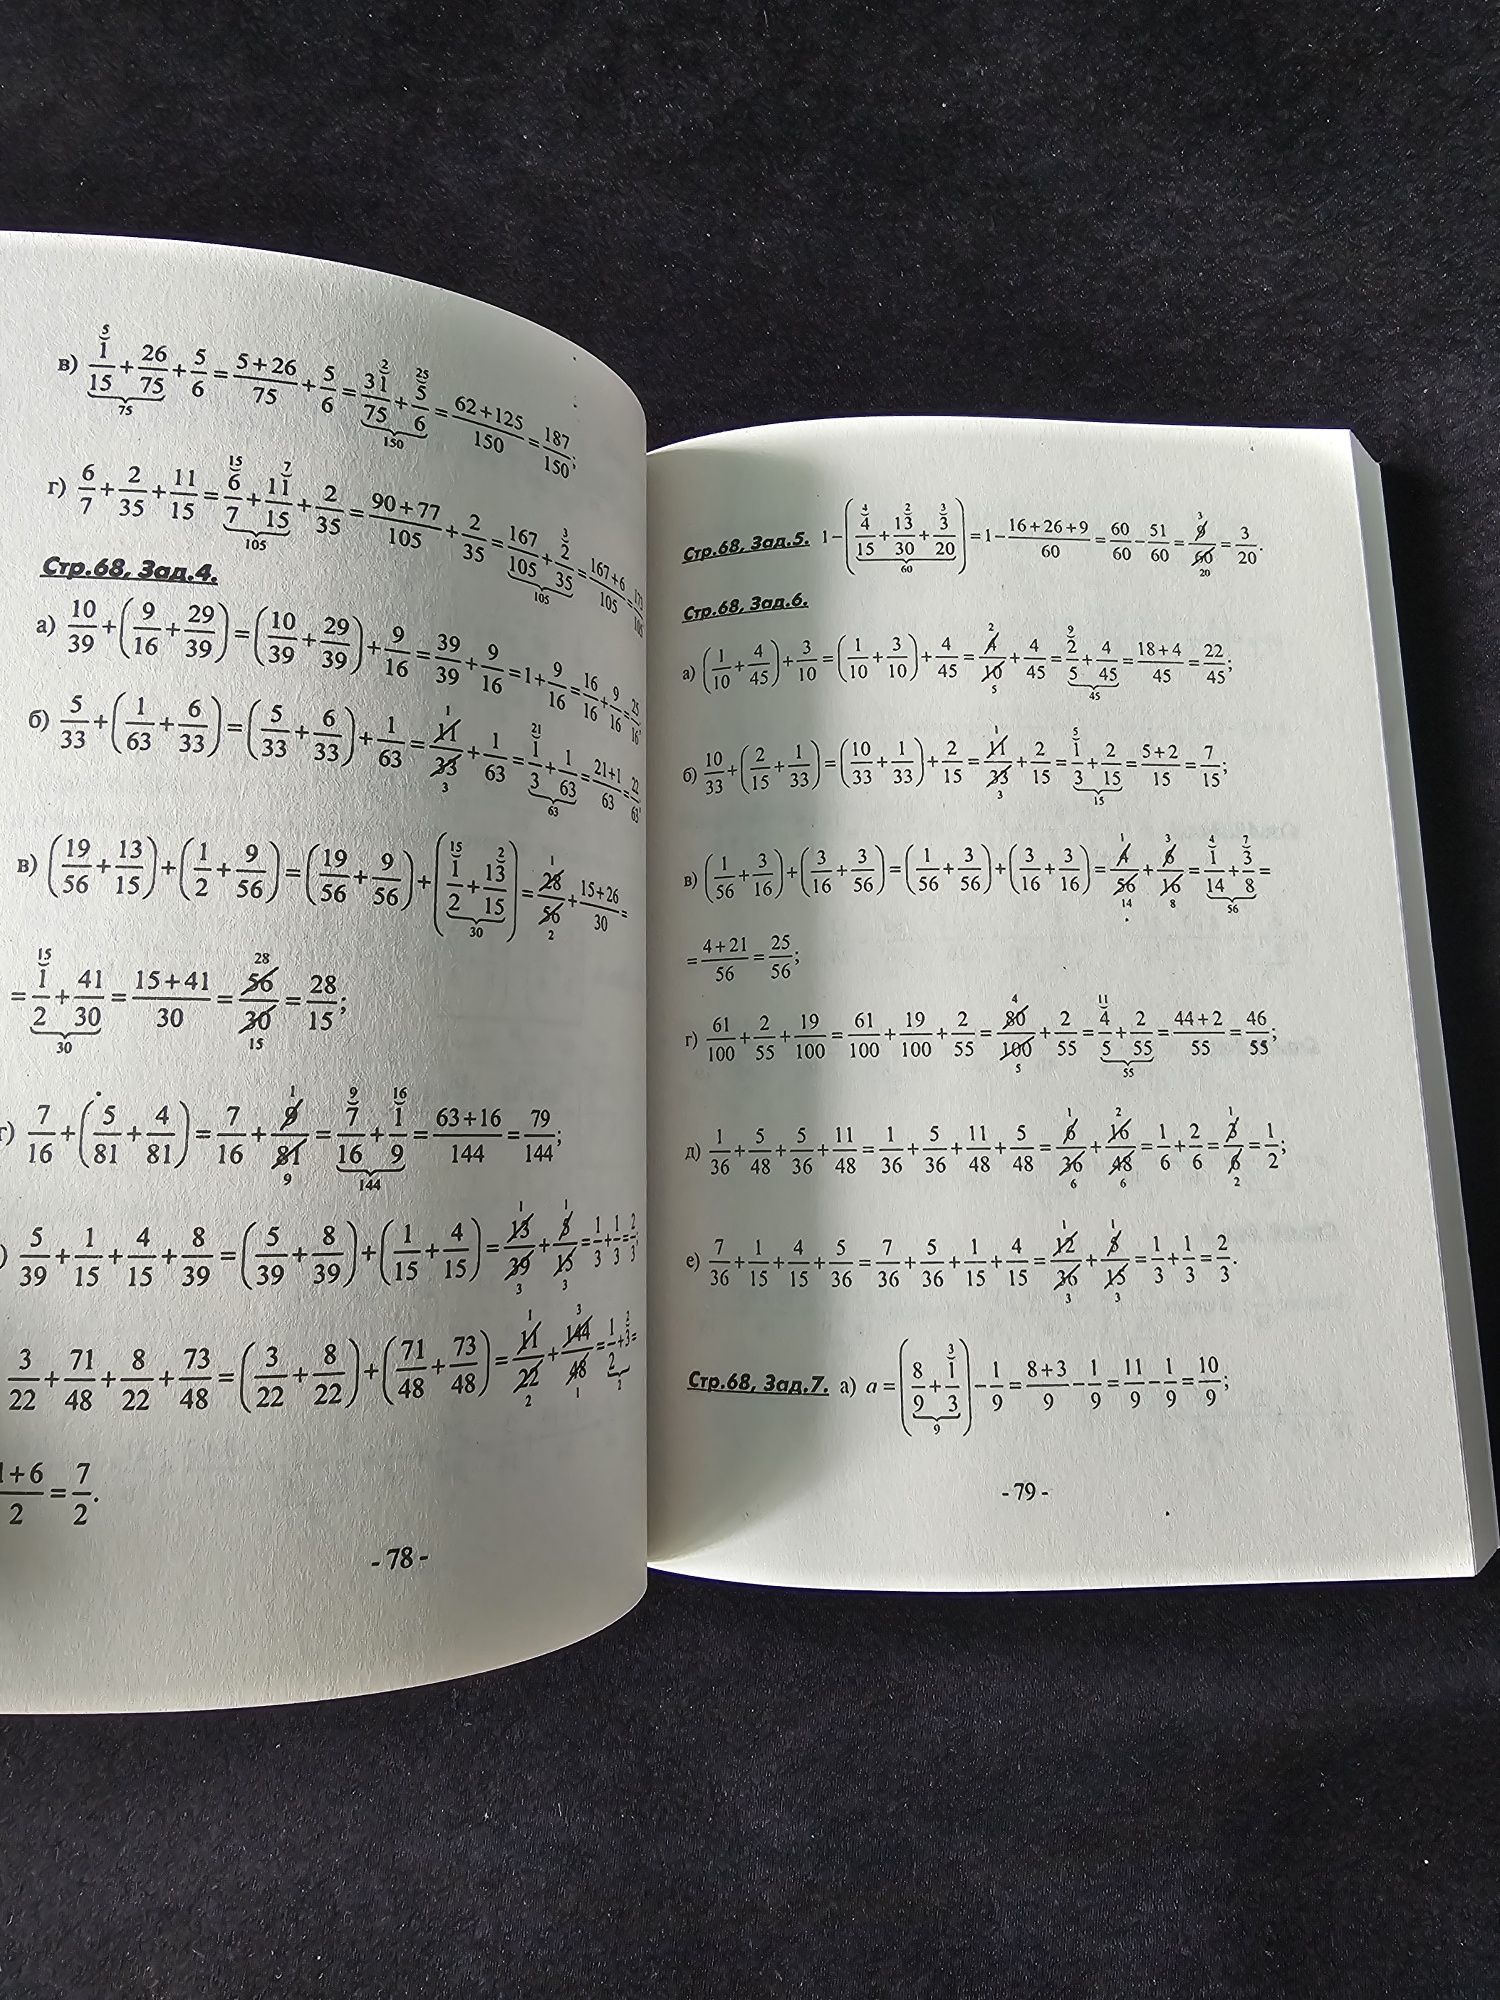 в) 1/15 + 26/75 + 5/6 = (5+26)/75 + 5/6 = 31/75 + 5/6 = (62+125)/150 = 187/150;
г) 6/7 + 2/35 + 11/15 = 6/7 + 11/15 + 2/35 = (90+77)/105 + 2/35 = 167/105 + 2/35 = (167+6)/105 = 173/105
Стр.68, Зад.4.
а) 10/39 + (9/16 + 29/39) = (10/39 + 29/39) + 9/16 = 39/39 + 9/16 = 1 + 9/16 = 16/16 + 9/16 = 25/16;
б) 5/33 + (1/63 + 6/33) = (5/33 + 6/33) + 1/63 = 11/33 + 1/63 = 1/3 + 1/63 = (21+1)/63 = 22/63;
в) (19/56 + 13/15) + (1/2 + 9/56) = (19/56 + 9/56) + (1/2 + 13/15) = 28/56 + (15+26)/30 =
= 1/2 + 41/30 = (15+41)/30 = 56/30 = 28/15;
г) 7/16 + (5/81 + 4/81) = 7/16 + 9/81 = 7/16 + 1/9 = (63+16)/144 = 79/144;
) 5/39 + 1/15 + 4/15 + 8/39 = (5/39 + 8/39) + (1/15 + 4/15) = 13/39 + 5/15 = 1/3 + 1/3 = 2/3;
3/22 + 71/48 + 8/22 + 73/48 = (3/22 + 8/22) + (71/48 + 73/48) = 11/22 + 144/48 = 1/2 + 3 =
1+6/2 = 7/2.
- 78 -
Стр.68, Зад.5. 1 - (4/15 + 13/30 + 3/20) = 1 - (16+26+9)/60 = 60/60 - 51/60 = 9/60 = 3/20.
Стр.68, Зад.6.
а) (1/10 + 4/45) + 3/10 = (1/10 + 3/10) + 4/45 = 4/10 + 4/45 = 2/5 + 4/45 = (18+4)/45 = 22/45;
б) 10/33 + (2/15 + 1/33) = (10/33 + 1/33) + 2/15 = 11/33 + 2/15 = 1/3 + 2/15 = (5+2)/15 = 7/15;
в) (1/56 + 3/16) + (3/16 + 3/56) = (1/56 + 3/56) + (3/16 + 3/16) = 4/56 + 6/16 = 1/14 + 3/8 =
= (4+21)/56 = 25/56;
г) 61/100 + 2/55 + 19/100 = 61/100 + 19/100 + 2/55 = 80/100 + 2/55 = 4/5 + 2/55 = (44+2)/55 = 46/55;
д) 1/36 + 5/48 + 5/36 + 11/48 = 1/36 + 5/36 + 11/48 + 5/48 = 6/36 + 16/48 = 1/6 + 2/6 = 3/6 = 1/2;
е) 7/36 + 1/15 + 4/15 + 5/36 = 7/36 + 5/36 + 1/15 + 4/15 = 12/36 + 5/15 = 1/3 + 1/3 = 2/3.
Стр.68, Зад.7. а) a = (8/9 + 1/3) - 1/9 = (8+3)/9 - 1/9 = 11/9 - 1/9 = 10/9;
- 79 -